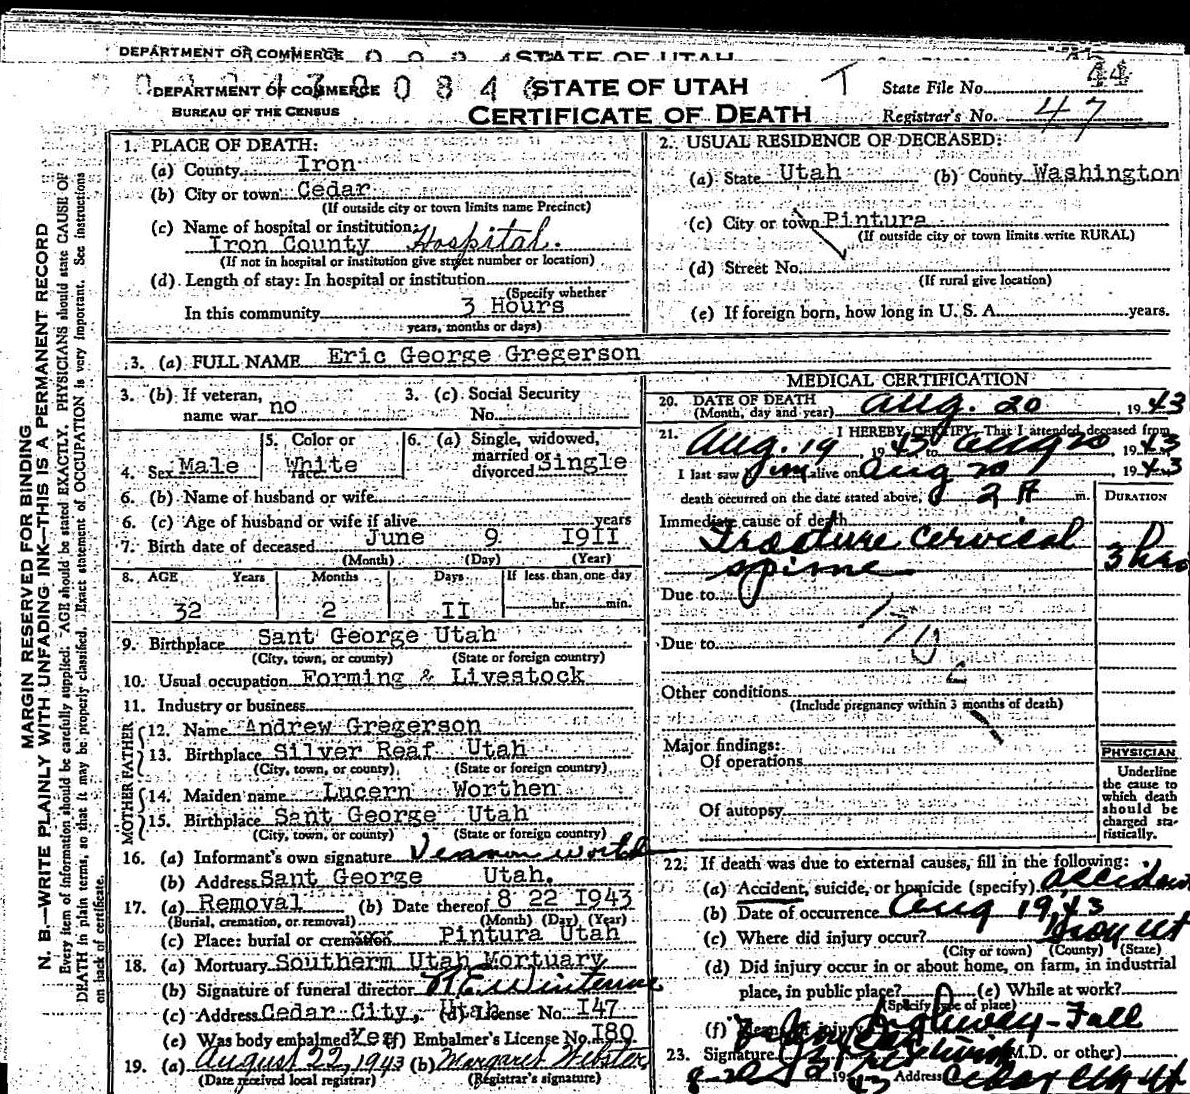 DEPARTMENT OF COMMERCE STATE OF UTAH
DEPARTMENT OF COMMERCE 0 8 4 STATE OF UTAH T State File No. 44
BUREAU OF THE CENSUS CERTIFICATE OF DEATH Registrar's No. 47
MARGIN RESERVED FOR BINDING
N. B.—WRITE PLAINLY WITH UNFADING INK—THIS IS A PERMANENT RECORD
Every item of information should be carefully supplied. AGE should be stated EXACTLY. PHYSICIANS should state CAUSE OF
DEATH in plain terms, so that it may be properly classified. Exact statement of OCCUPATION is very important. See instructions
on back of certificate.
1. PLACE OF DEATH:
(a) County Iron
(b) City or town Cedar
(If outside city or town limits name Precinct)
(c) Name of hospital or institution:
Iron County Hospital.
(If not in hospital or institution give street number or location)
(d) Length of stay: In hospital or institution
(Specify whether
In this community 3 Hours
years, months or days)
2. USUAL RESIDENCE OF DECEASED:
(a) State Utah (b) County Washington
(c) City or town Pintura
(If outside city or town limits write RURAL)
(d) Street No.
(If rural give location)
(e) If foreign born, how long in U. S. A. years.
3. (a) FULL NAME Eric George Gregerson
3. (b) If veteran, name war no 3. (c) Social Security No.
4. Sex Male 5. Color or race White 6. (a) Single, widowed, married or divorced Single
6. (b) Name of husband or wife
6. (c) Age of husband or wife if alive years
7. Birth date of deceased June 9 I9II
(Month) (Day) (Year)
8. AGE Years Months Days If less than one day
32 2 II hr. min.
9. Birthplace Sant George Utah
(City, town, or county) (State or foreign country)
10. Usual occupation Forming & Livestock
11. Industry or business
FATHER
12. Name Andrew Gregerson
13. Birthplace Silver Reaf Utah
(City, town, or county) (State or foreign country)
MOTHER
14. Maiden name Lucern Worthen
15. Birthplace Sant George Utah
(City, town, or county) (State or foreign country)
16. (a) Informant's own signature Vernon
(b) Address Sant George Utah.
17. (a) Removal (b) Date thereof 8 22 I943
(Burial, cremation, or removal) (Month) (Day) (Year)
(c) Place: burial or cremation Pintura Utah
18. (a) Mortuary Southerm Utah Mortuary
(b) Signature of funeral director
(c) Address Cedar City, Utah (d) License No. I47
(e) Was body embalmed Yes (f) Embalmer's License No. I80
19. (a) August 22, 1943 (b) Margaret Webster
(Date received local registrar) (Registrar's signature)
MEDICAL CERTIFICATION
20. DATE OF DEATH
(Month, day and year) Aug. 20, 1943
21. I HEREBY CERTIFY, That I attended deceased from
Aug. 19, 1943 to Aug 20, 1943
I last saw him alive on Aug 20 1943
death occurred on the date stated above, 2 A m. DURATION
Immediate cause of death
Fracture cervical
spine 3 hrs
Due to
Due to
Other conditions
(Include pregnancy within 3 months of death)
Major findings:
Of operations
Of autopsy
PHYSICIAN
Underline
the cause to
which death
should be
charged sta-
tistically.
22. If death was due to external causes, fill in the following:
(a) Accident, suicide, or homicide (specify) Accident
(b) Date of occurrence Aug 19, 43
(c) Where did injury occur? Iron Ut
(City or town) (County) (State)
(d) Did injury occur in or about home, on farm, in industrial
place, in public place? (e) While at work?
(Specify type of place)
(f) Means of injury Fall
23. Signature (M.D. or other)
43 Address Cedar City Ut